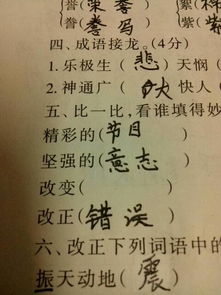 誉(荣 誉) 紫(
誊(誊 写) 絮(
四、成语接龙。(4分)
1.乐极生(悲)天悯(
2.神通广(大)快人(
五、比一比,看谁填得妙
精彩的(节目)
坚强的(意志)
改变( )
改正(错误)
六、改正下列词语中的
振天动地(震)